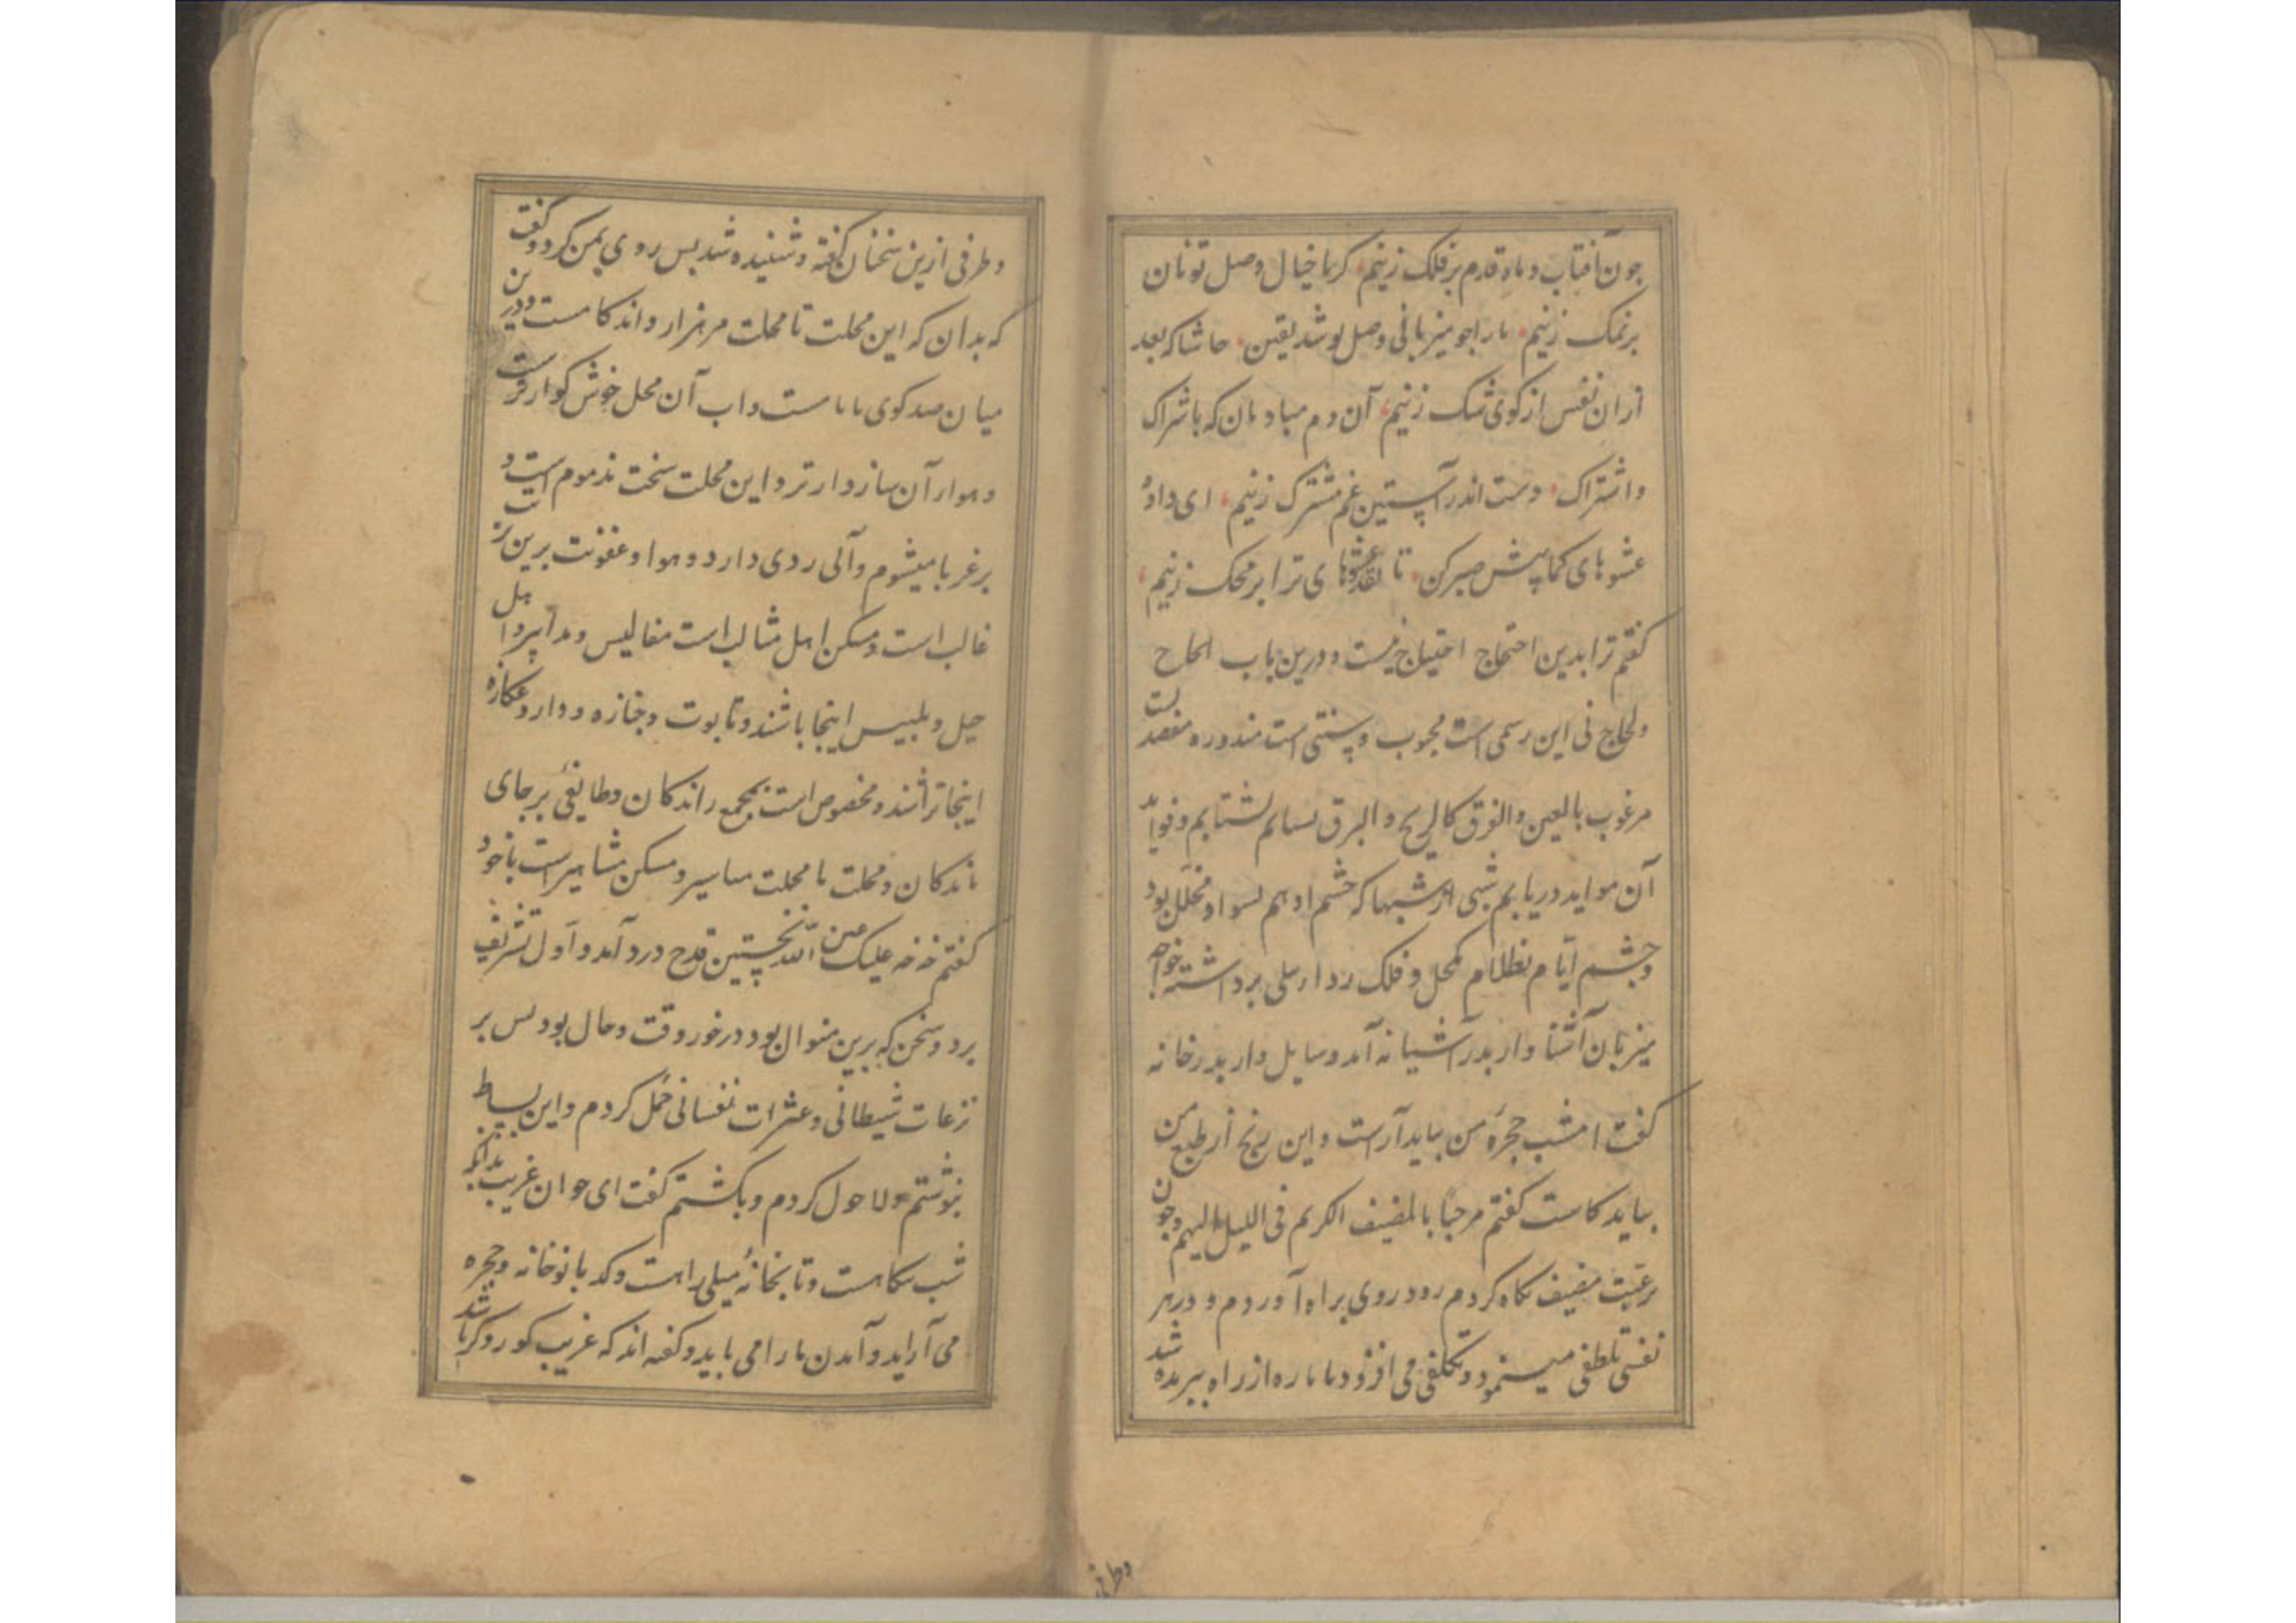 چون آفتاب و ماه قدم بر فلک زنیم کر ما خیال وصل تو نان
بر نمک زنیم مارا چو میزبانی وصل تو شد یقین حاشا که بعد
ازان نفس از کوی شک زنیم آن دم مبادمان که باشراک
و اشتراک دست اندر آستین غم مشترک زنیم ای داده
عشوهای کما پیش صبر کن تا نقدهای ترا بر محک زنیم
کفتم ترا بدین احتجاج احتیاج نیست و درین باب الحاح
و لجاج نی این رسمی است محبوب و سنتی است مندوره مقصدیست
مرغوب بالعین و الفرق کالریح و البرق بشتابم و فواید
آن مواید دریابم شبی از شبها که چشم ادهم بسواد مکحل بود
و چشم ایام بظلام مکحل و فلک ردا برداشته خواجه
میزبان آشنا وار بدر آشیانه آمد و سایل وار بدر خانه
کفت امشب حجرهٔ من بباید آراست و این رنج از طبع من
بباید کاست کفتم مرحبا بالمضیف الکریم فی اللیل البهیم و چون
برغبت مضیف نکاه کردم زود روی براه آوردم و در هر
نفسی تلطفی مینمود و تکلفی می افزود تا پاره از راه بریده شد
و طرفی ازین سخنان کفته و شنیده شد پس روی بمن کرد و کفت
که بدان که این محلت تا محلت من هزار و اند کامست و درین
میان صد کوی با نامست و آب آن محل خوش کوارترست
و هوای آن سازوارتر و این محلت سخت مذموم است و
بر غربا میشوم و آبی ردی دارد و هوا و عفونت برین تربت
غالب است و مسکن اهل مثالب است مفالیس و مدابیر و اهل
حیل و تلبیس اینجا باشند و تابوت و جنازه و دار و عکازه
اینجا تراشند و مخصوص است بمجمع راندکان و طایفهٔ بر جای
ماندکان و محلت ما محلت میاسیر و مسکن مشاهیرست با خود
کفتم خه خه علیک عین الله نخستین قدح درد آمد و اول تشریف
برد و سخن که برین منوال بود در خور وقت و حال بود پس بر
نزعات شیطانی و عثرات نفسانی حمل کردم و این بساط
بنوشتم و لا حول کردم و بکشتم کفت ای جوان غریب بدانکه
شب بیکاهست و تا بخانهٔ میلی راهست و کدبانو خانه و حجره
می آراید و آمدن ما را می پاید و کفته اند که غریب کور و کر باشد
وطرفی